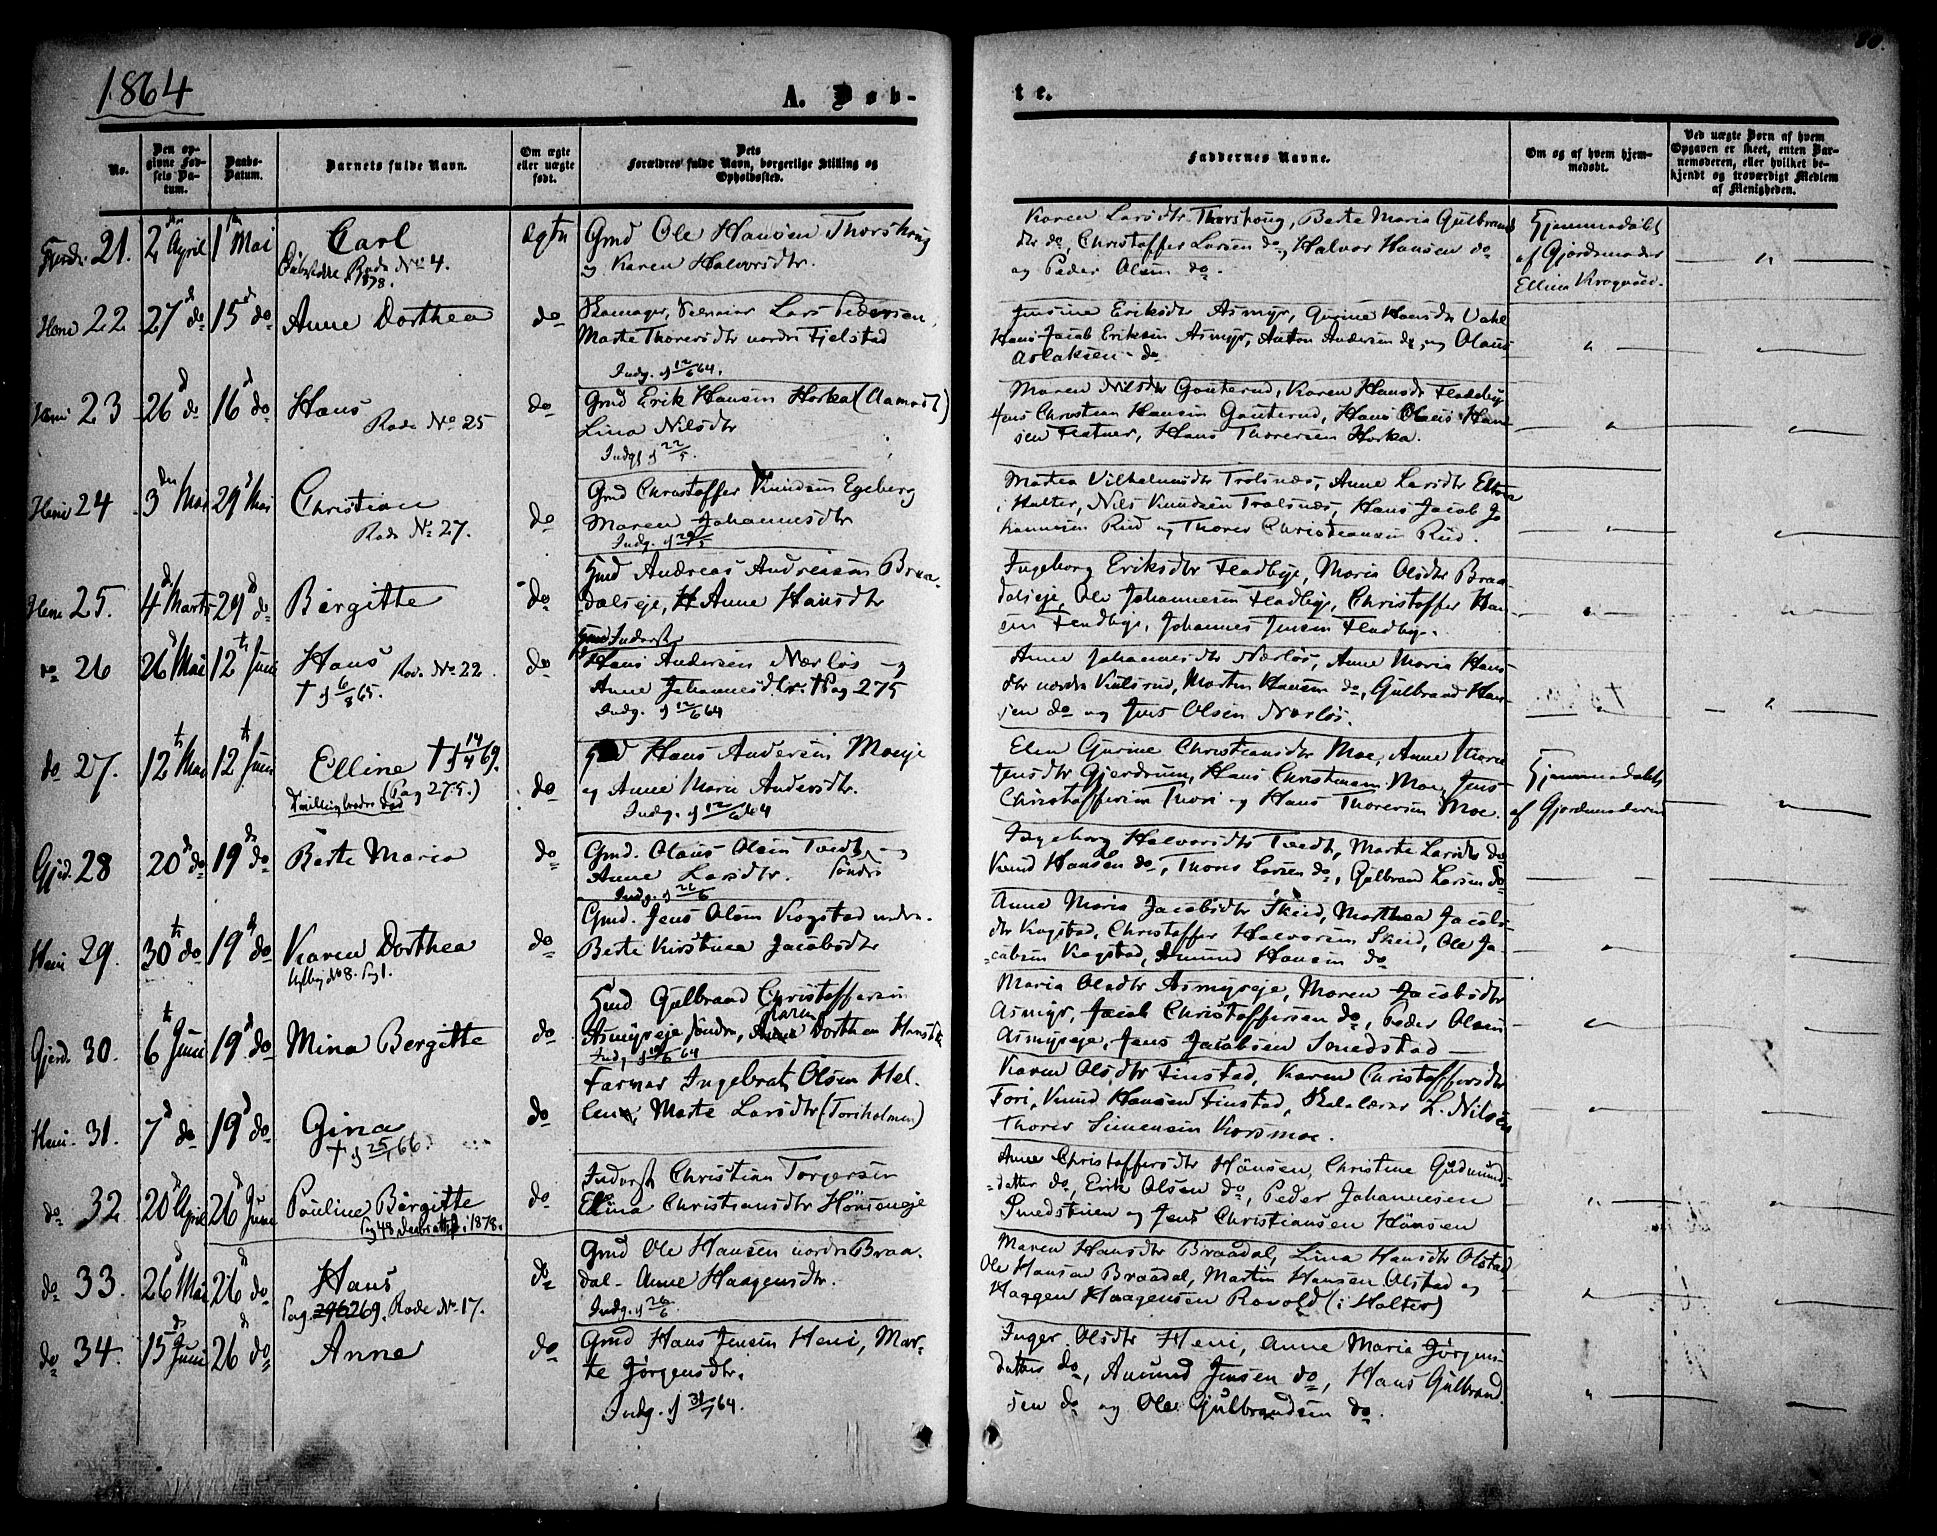 1864
A. Døb-
te.
No.
Den opgivne Fødsels Datum.
Daabs-Datum.
Barnets fulde Navn.
Om ægte eller uægte født.
Dets Forældres fulde Navn, borgerlige Stilling og Opholdssted.
Faddernes Navne.
Om og af hvem hjemmedøbt.
Ved uægte Børn af hvem Opgaven er skeet, enten Barnemoderen, eller hvilket bekjendt og troværdigt Medlem af Menigheden.
21. 2den April 1ste Mai Carl
Rode No 4.
1878.
Ægte
Gmd Ole Hansen Thorshoug
og Karen Halvorsdtr.
Karen Larsdtr Thorshoug, Berte Maria Gulbrands
dtr do, Christoffer Larsen do, Halvor Hansen do
og Peder Olsen do.
Hjemmedøbt
af Gjordemoder
Elline
Heni 22 27d do 15d do Anne Dorthea do
Lars Pedersen,
Marte Thorersdtr nordre Fjelstad
Indg. d 12/6 64.
Eriksdtr Asmyr, Gurine Hansdtr
Hans Jacob Eriksen Asmyr, Anton Andersen do, og Olaus
Aslaksen do
Heni 23 26d do 16d do Hans
Rode No 25
do
Gmd Erik Hansen Horka (Aamodt)
Lina Nilsdtr
Indg. d 22/5
Maren Nilsdtr Gouterud, Karen Hansdtr Fladebye
Jens Christian Hansen Gouterud, Hans Olaus Han
sen, Hans Thorersen Horka.
Heni 24 3den Mai 29d Mai Christian
Rode No 27.
do
Gmd Christoffer Knudsen Egeberg
Maren Johannesdtr
Indg. d 29/5
Martea Vilhelmsdtr Trolsnæs, Anne Larsdtr
i Holter, Nils Knudsen Trolsnæs, Hans Jacob Jo
hannesen Rud og Thorer Christiansen Rud.
Heni 25. 4d Marts 29d do Birgitte do
Hmd Andreas Andreasen Braa-
dalseje, Anne Hansdtr
Ingeborg Eriksdtr Fladbye, Maria Olsdtr Braa
dalseje, Ole Johannesen Fladbye, Christoffer Han
sen Fladbye, Johannes Jensen Fladbye.
do 26 26d Mai 12t Juni Hans Rode No 22.
† d 6/8 65.
do
Inderst
Hans Andersen Nærløs og
Anne Johannesdtr. † Pag 275
Indg. d 12/6 64
Anne Johannesdtr Nærløs, Anne Maria Hans
dtr nordre Kulsrud, Martin Hansen do, Gulbrand Han
sen do og Jens Olsen Nærløs.
do 27. 12t Mai 12t Juni Elline † d 14/4 69.
(Pag 275.)
Tvillingbroder død
do
Hans Andersen Moeje
og Anne Marie Andersdtr.
Indg. d 12/6 64
Elen Gurine Christiansdtr Moe, Anne Maria
Jensdtr Gjerdrum, Hans Christiansen Moe, Jens
Christoffersen Thori og Hans Thorersen Moe.
Hjemmedøbt
af Gjordemoderen
Gjerd. 28 20d do 19d do Berte Maria do
Gmd. Olaus Olsen Tvedt og
Anne Larsdtr. Søndre
Indg. d 26/6
Ingeborg Halvorsdtr Tvedt, Marte Larsdtr do
Knud Hansen do, Thorer Larsen do, Gulbrand Larsen do
Heni 29. 30t do 19d do Karen Dorthea
No 8. Pag 1.
do
Gmd. Jens Olsen Kogstad nedre.
Berte Kirstine Jacobsdtr
Anne Maria Jacobsdtr Skeid, Marthea Jacobs-
dtr Kogstad, Christoffer Halvorsen Skeid, Ole Ja-
cobsen Kogstad, Amund Hansen do
Gjerd. 30. 6t Juni 19d do Mina Bergitte do
Hmd Gulbrand Christoffersen
Asmyreje Søndre, Karen Dorthea Hansdtr
Indg. d 19/6 64
Maria Olsdtr Asmyreje, Maren Jacobsdtr
Asmyr, Jacob Christoffersen do, Peder Olsen
Asmyreje, Jens Jacobsen Smedstad
Heni 31. 7d do 19d do Gina
† d 25/1 66.
do
Farver Ingebrat Olsen Hel-
Marte Larsdtr (Toriholmen)
Karen Olsdtr Finstad, Karen Christoffersdtr
Tori, Knud Hansen Finstad, Skolelærer L. Nilsen
Thorer Simensen Korsmoe.
do 32 20d April 26d Juni Pauline Birgitte
Pag 48, Daabsattest i 1878.
do
Inderst Christian Torgersen
Elina Christiansdtr Hönseneje
Anne Christoffersdtr Hönsen, Christine Gudmunds
datter do, Erik Olsen do, Peder Johannesen
Smedstuen og Jens Christiansen Hönsen
do 33. 26d Mai 26d do Hans
Pag 269. Rode No 17.
do
Gmd Ole Hansen nordre Braa-
dal - Anne Haagensdtr.
Indg. d 26/6
Maren Hansdtr Braadal, Lina Hansdtr Olstad
Ole Hansen Braadal, Martin Hansen Olstad og
Haagen Haagensen Rovold (i Holter)
do 34. 15d Juni 26d do Anne do
Gmd Hans Jensen Heni, Mar-
te Jørgensdtr.
Indg. d 31/7 64.
Inger Olsdtr Heni, Anne Maria Jørgens-
datter do, Amund Jensen do, Hans Gulbrand
sen do og Ole Gulbrandsen do.